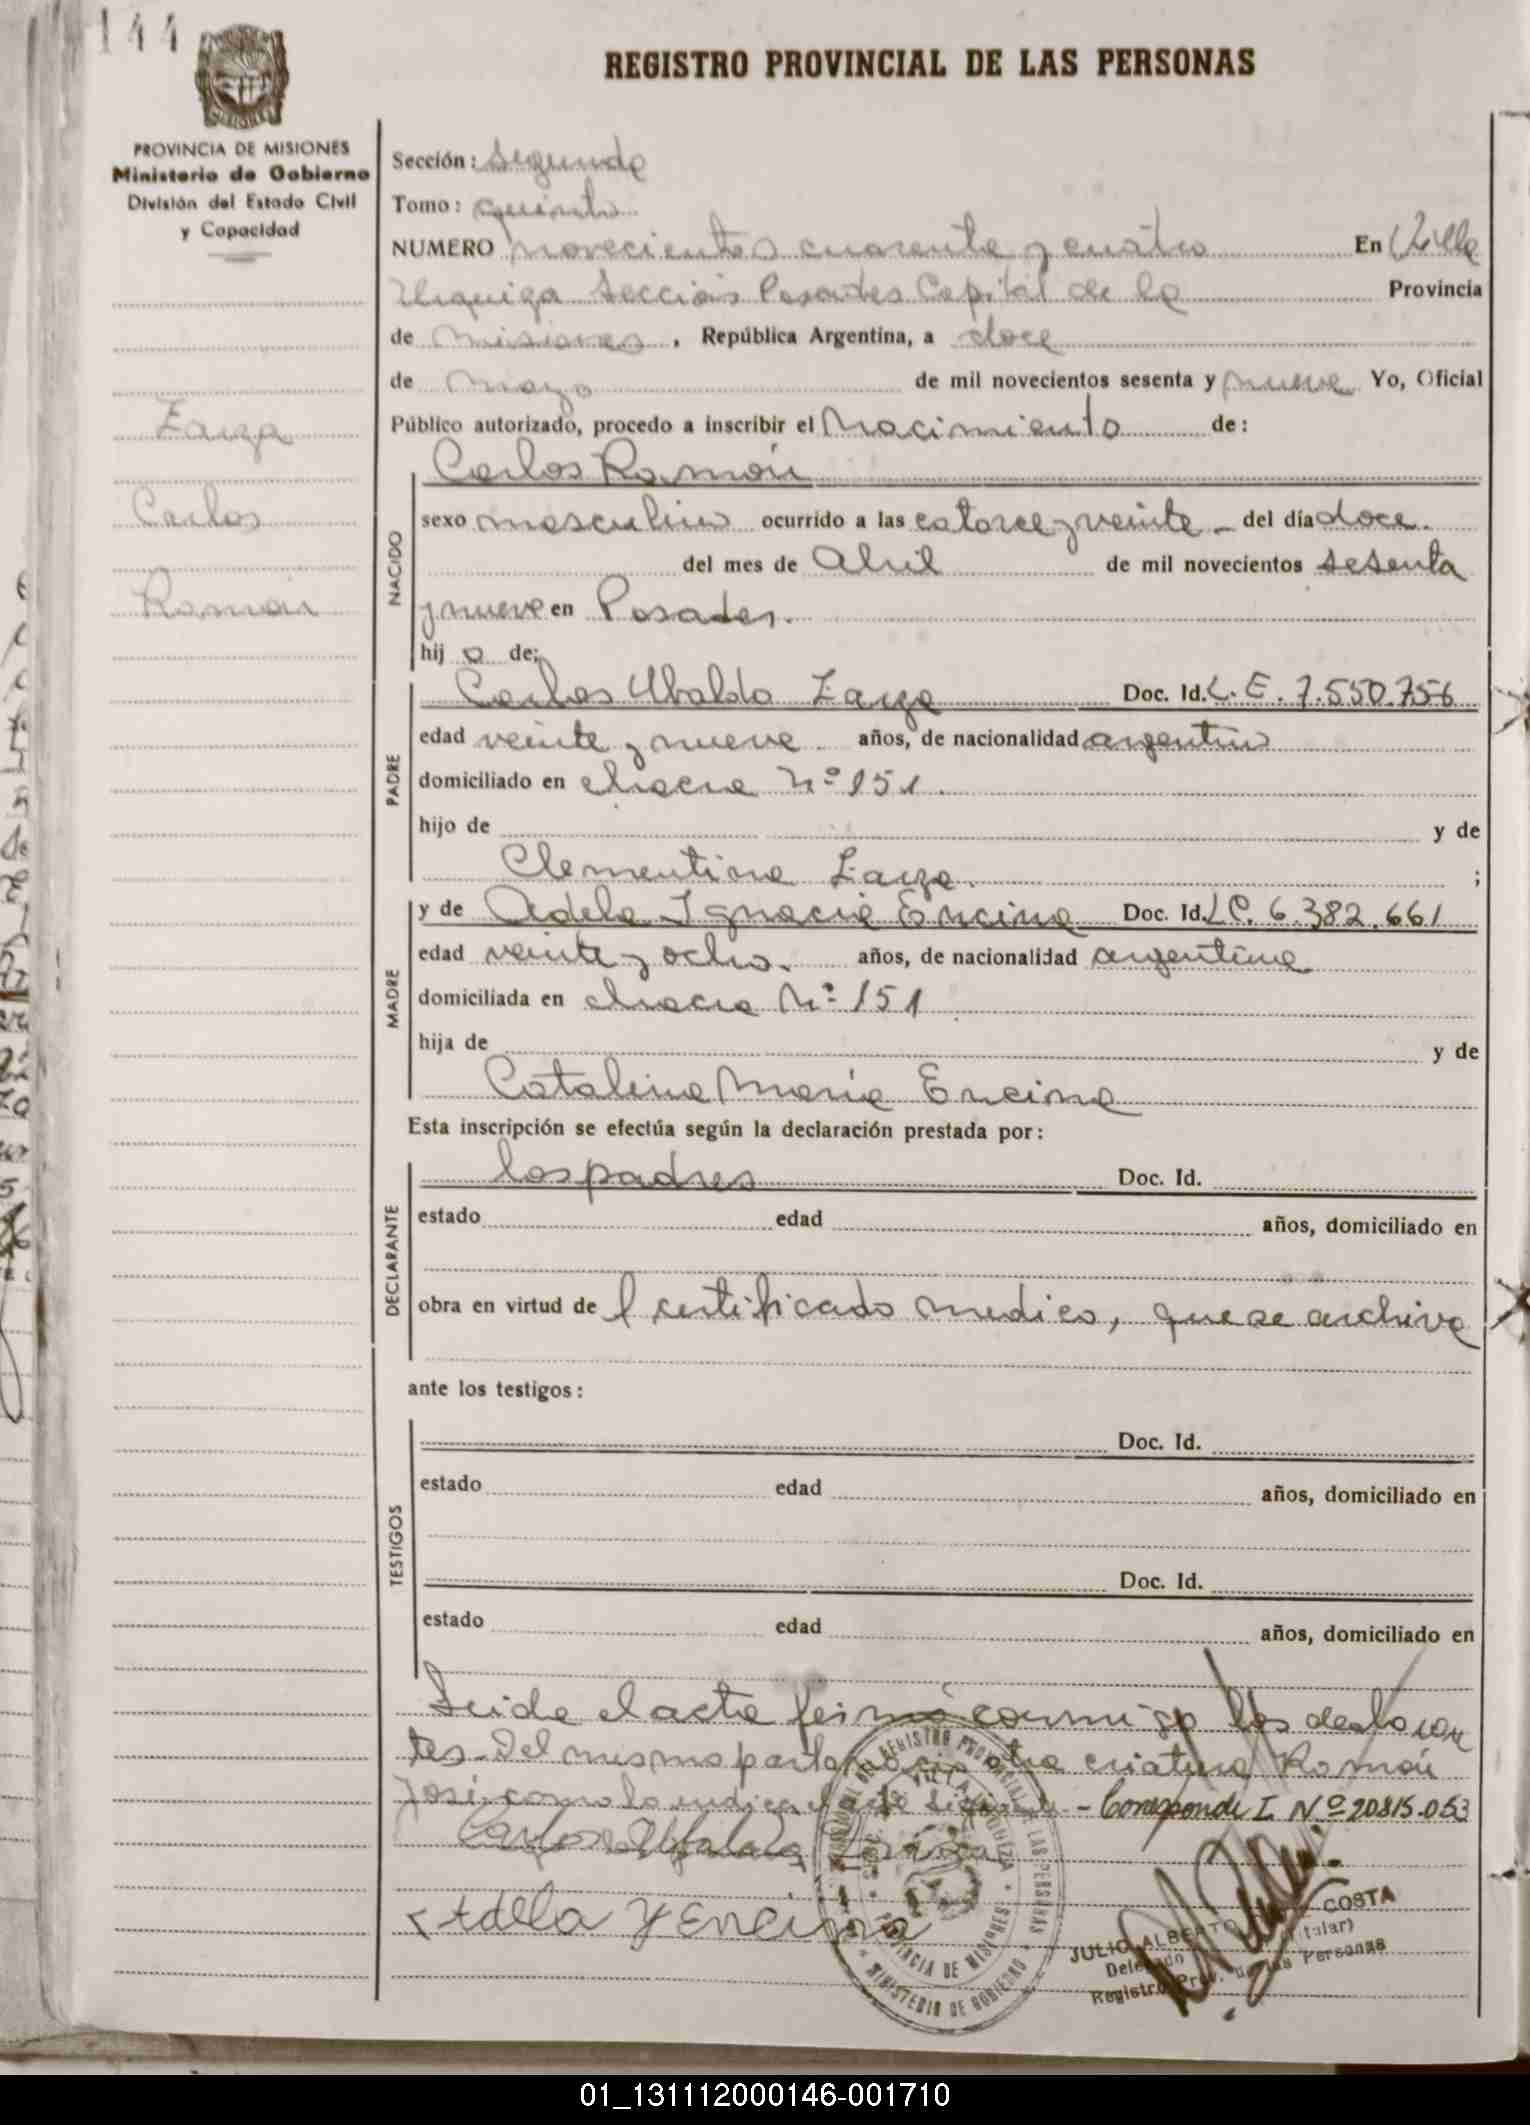 144
REGISTRO PROVINCIAL DE LAS PERSONAS
PROVINCIA DE MISIONES
Ministerio de Gobierno
División del Estado Civil
y Capacidad
Zarza
Carlos
Ramón
Sección: Segunda
Tomo: quinto
NUMERO novecientos cuarenta y cuatro En Villa
Urquiza Sección Posadas Capital de la Provincia
de Misiones, República Argentina, a doce
de mayo de mil novecientos sesenta y nueve Yo, Oficial
Público autorizado, procedo a inscribir el Nacimiento de:
NACIDO
Carlos Ramón
sexo masculino ocurrido a las catorce y veinte - del día doce
del mes de Abril de mil novecientos sesenta
y nueve en Posadas.
hij o de:
PADRE
Carlos Ubaldo Zarza Doc. Id. L.E. 7.550.756
edad veinte y nueve años, de nacionalidad argentino
domiciliado en chacra Nº 151.
hijo de y de
Clementina Zarza. ;
MADRE
y de Adela Ignacia Encina Doc. Id. LC. 6.382.661
edad veinte y ocho. años, de nacionalidad argentina
domiciliada en chacra Nº 151
hija de y de
Catalina María Encina
Esta inscripción se efectúa según la declaración prestada por:
DECLARANTE
los padres Doc. Id.
estado edad años, domiciliado en
obra en virtud de l certificado medico, que se archiva
ante los testigos:
TESTIGOS
Doc. Id.
estado edad años, domiciliado en
Doc. Id.
estado edad años, domiciliado en
Leida el acta firmó conmigo los declaran
tes. Del mismo parto nació otra criatura Ramón
José como lo indica el acta - Corresponde I. Nº 20815.053
Carlos Ubaldo Zarza
Adela Y Encina
REGISTRO PROVINCIAL DE LAS PERSONAS
VILLA URQUIZA
PROVINCIA DE MISIONES
MINISTERIO DE GOBIERNO
JULIO ALBERTO COSTA
Delegado (Titular)
Registro Prov. de las Personas
01_131112000146-001710